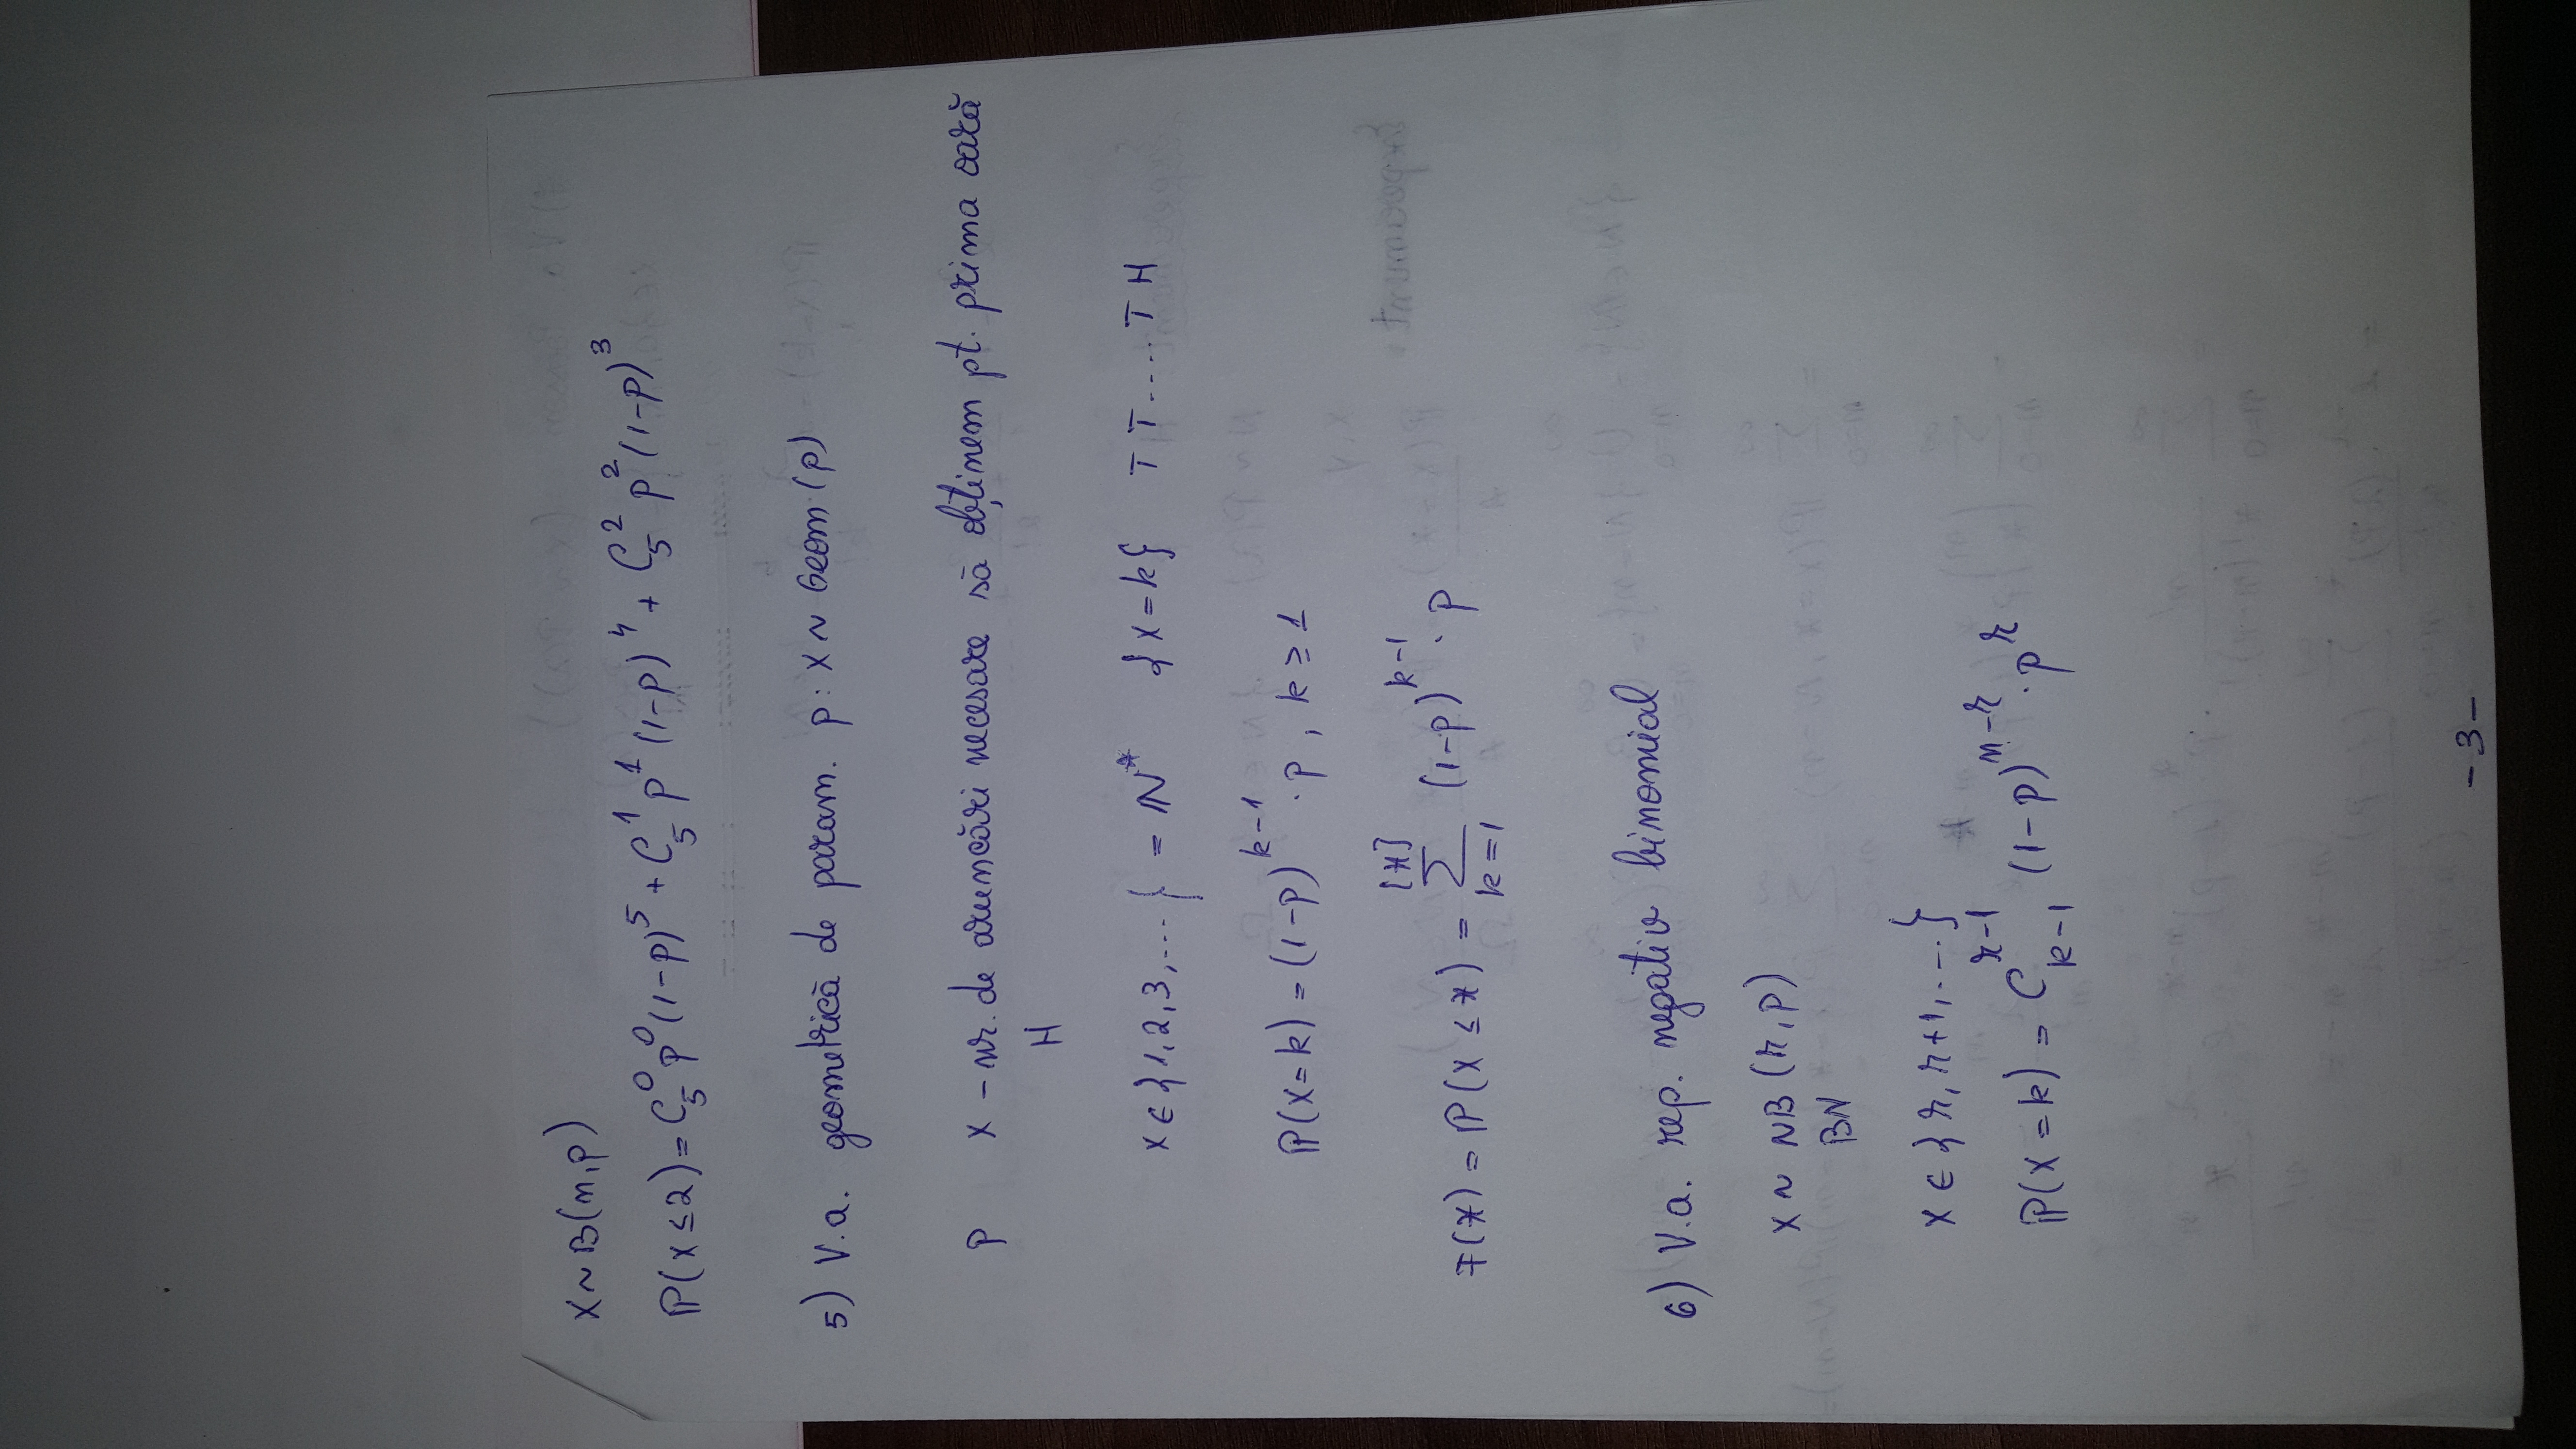 X ~ B(n,p)
P(X ≤ 2) = C₅⁰ p⁰ (1-p)⁵ + C₅¹ p¹ (1-p)⁴ + C₅² p² (1-p)³
5) V.a. geometrică de param. p: X ~ Geom(p)
p X - nr. de aruncări necesare să obținem pt. prima oară
H
X ∈ {1, 2, 3, ...} = ℕ* {X = k} T T .... T H
P(X = k) = (1-p)^{k-1} · p, k ≥ 1
F(x) = P(X ≤ x) = ∑_{k=1}^{[x]} (1-p)^{k-1} · p
6) V.a. rep. negativ binomial
X ~ NB(r,p)
BN
X ∈ {r, r+1, ...}
P(X = k) = C_{k-1}^{r-1} (1-p)^{n-r} · p^r
- 3 -